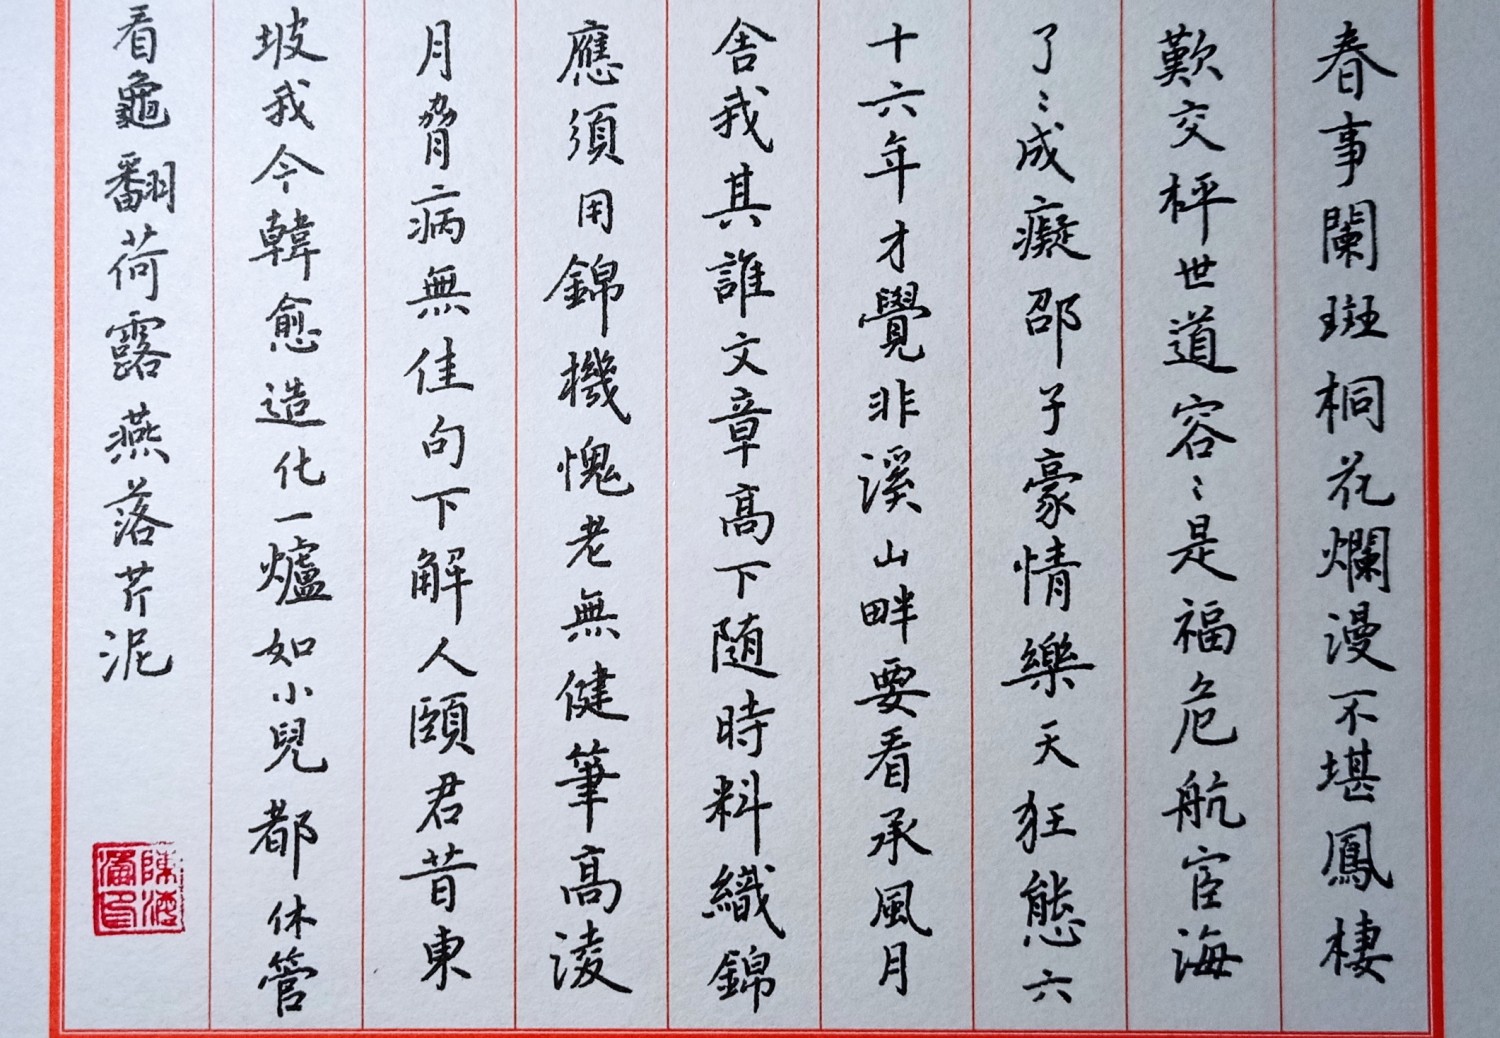 春事闌斑桐花爛漫不堪鳳棲
歎交枰世道容〻是福危航宦海
了〻成癡邵子豪情樂天狂態六
十六年才覺非溪山畔要看承風月
舍我其誰文章高下随時料織錦
應須用錦機愧老無健筆高淩
月脅病無佳句下解人頤君昔東
坡我今韓愈造化一爐如小兒都休管
看龜翻荷露燕落芹泥